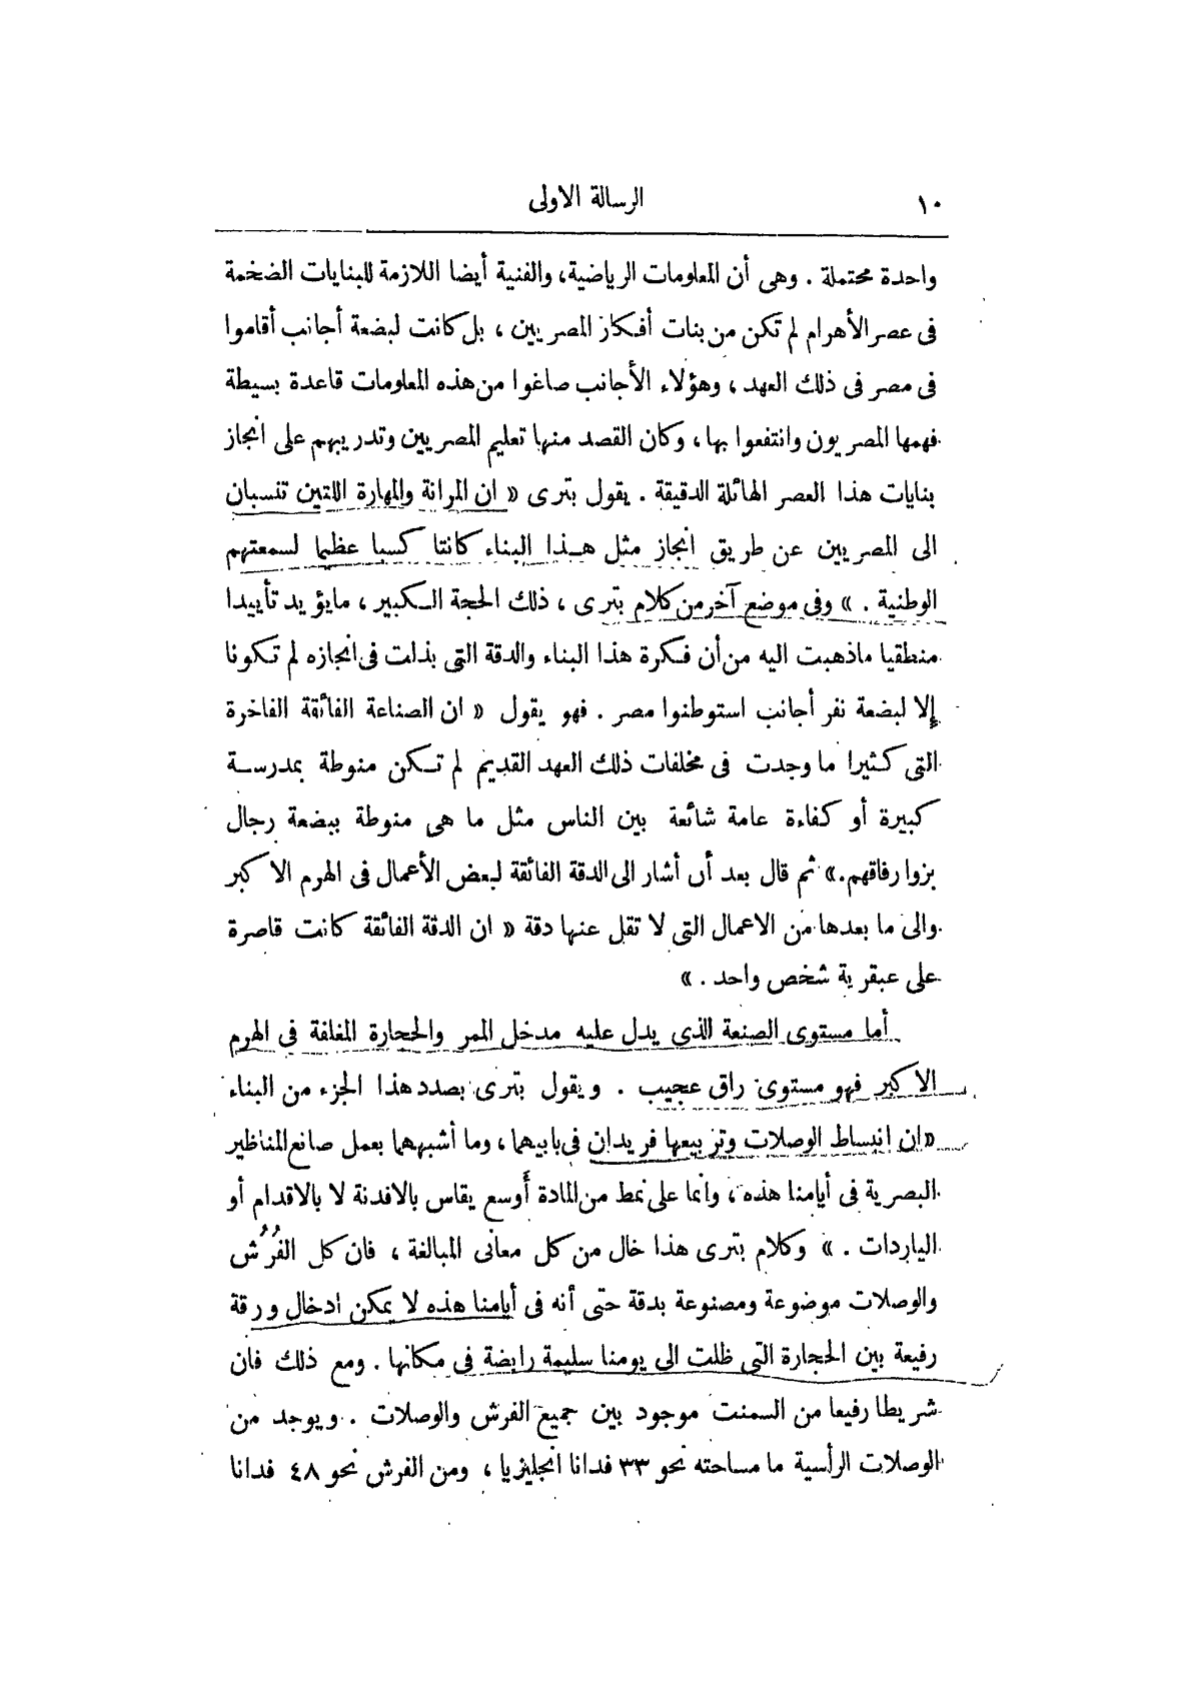 ١٠
الرسالة الاولى
واحدة محتملة . وهى أن المعلومات الرياضية، والفنية أيضا اللازمة للبنايات الضخمة
فى عصر الأهرام لم تكن من بنات أفكار المصريين ، بل كانت لبضعة أجانب أقاموا
فى مصر فى ذلك العهد ، وهؤلاء الأجانب صاغوا من هذه المعلومات قاعدة بسيطة
فهمها المصريون وانتفعوا بها ، وكان القصد منها تعليم المصريين وتدريبهم على انجاز
بنايات هذا العصر الهائلة الدقيقة . يقول بترى « ان المرانة والمهارة اللتين تنسبان
الى المصريين عن طريق انجاز مثل هذا البناء كانتا كسبا عظيما لسمعتهم
الوطنية . » وفى موضع آخر من كلام بترى ، ذلك الحجة الكبير ، مايؤيد تأييدا
منطقيا ماذهبت اليه من أن فكرة هذا البناء والدقة التى بذلت فى انجازه لم تكونا
إلا لبضعة نفر أجانب استوطنوا مصر . فهو يقول « ان الصناعة الفائقة الفاخرة
التى كثيرا ما وجدت فى مخلفات ذلك العهد القديم لم تكن منوطة بمدرسة
كبيرة أو كفاءة عامة شائعة بين الناس مثل ما هى منوطة ببضعة رجال
بزوا رفاقهم.» ثم قال بعد أن أشار الى الدقة الفائقة لبعض الأعمال فى الهرم الاكبر
والى ما بعدها من الاعمال التى لا تقل عنها دقة « ان الدقة الفائقة كانت قاصرة
على عبقرية شخص واحد . »
أما مستوى الصنعة الذى يدل عليه مدخل الممر والحجارة المغلفة فى الهرم
الاكبر فهو مستوى راق عجيب . ويقول بترى بصدد هذا الجزء من البناء
«ان انبساط الوصلات وتربيعها فريدان فى بابيهما ، وما أشبههما بعمل صانع المناظير
البصرية فى أيامنا هذه ، وانما على نمط من المادة أوسع يقاس بالافدنة لا بالاقدام أو
الياردات . » وكلام بترى هذا خال من كل معانى المبالغة ، فان كل الفُرُش
والوصلات موضوعة ومصنوعة بدقة حتى أنه فى أيامنا هذه لا يمكن ادخال ورقة
رفيعة بين الحجارة التى ظلت الى يومنا سليمة رابضة فى مكانها . ومع ذلك فان
شريطا رفيعا من السمنت موجود بين جميع الفرش والوصلات . ويوجد من
الوصلات الرأسية ما مساحته نحو ٣٣ فدانا انجليزيا ، ومن الفرش نحو ٤٨ فدانا